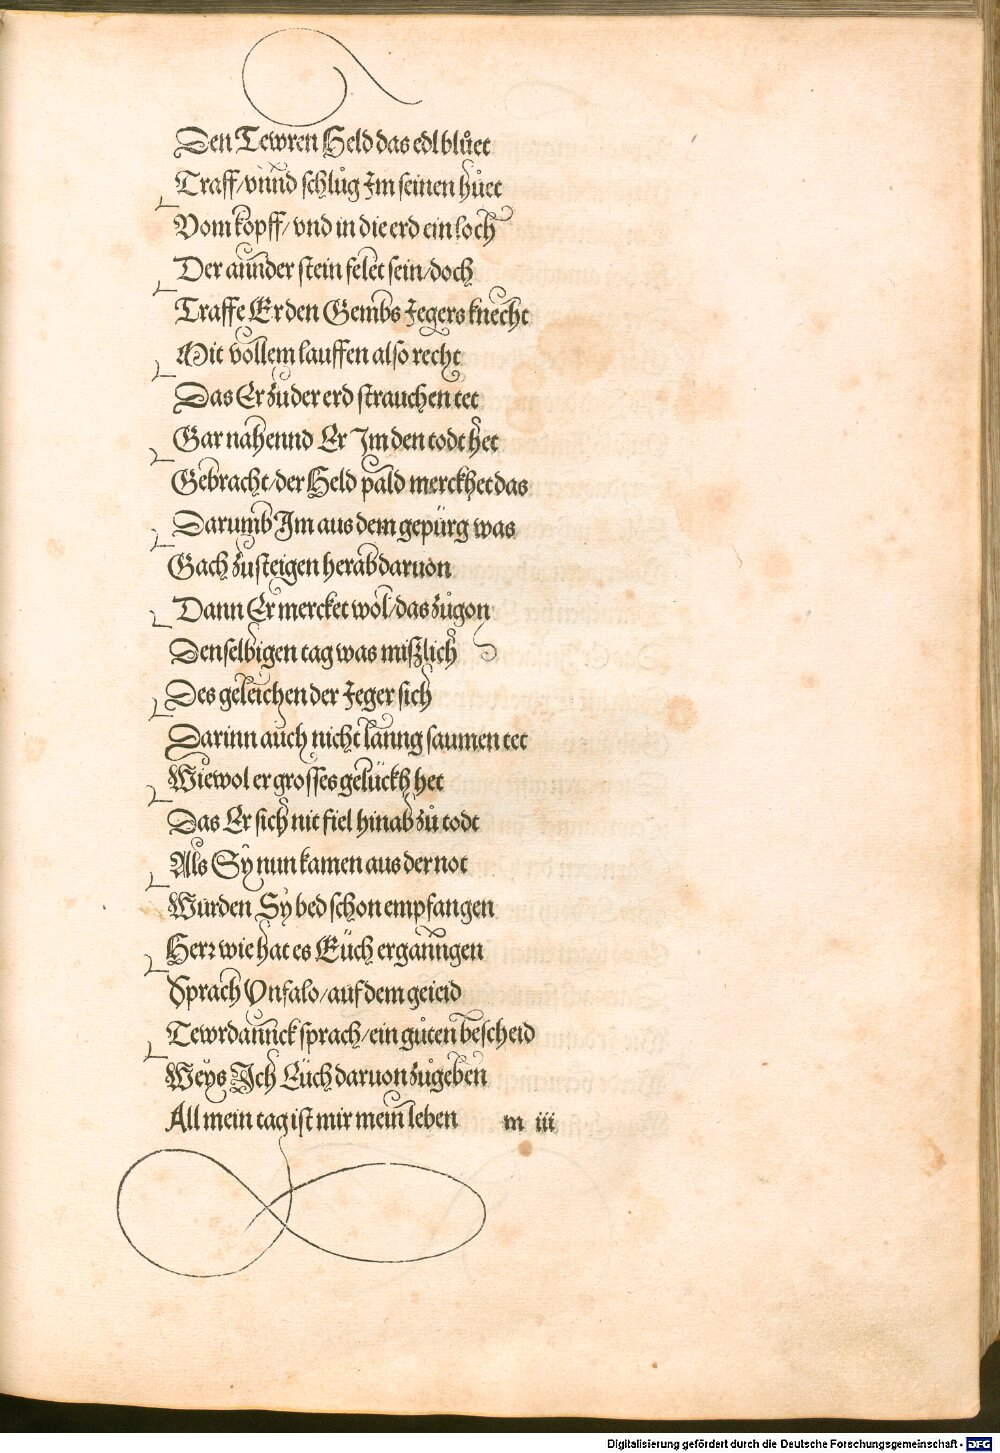 Den Tewren Held das edl blůet
Traff/vnnd schlůg Im seinen hůet
Vom kopff/vnd in die erd ein loch
Der annder stein felet sein/doch
Traffe Er den Gembs Jegers knecht
Mit vollem lauffen also recht
Das Er zu der erd strauchen tet
Gar nahennd Er Im den todt het
Gebracht/der Held pald merckhet das
Darumb Im aus dem gepürg was
Gach zu steigen herab daruon
Dann Er mercket wol/das zůgon
Denselbigen tag was mißlich
Des geleichen der Jeger sich
Darinn auch nicht lanng saumen tet
Wiewol er grosses gelückh het
Das Er sich nit fiel hinab zů todt
Als Sy nun kamen aus der not
Wurden Sy bed schon empfangen
Herr wie hat es Eüch erganngen
Sprach Vnfalo/auf dem geieid
Tewrdannck sprach/ein gůten bescheid
Weys Ich Eüch daruon zůgeben
All mein tag ist mir mein leben m iii
Digitalisierung gefördert durch die Deutsche Forschungsgemeinschaft - DFG